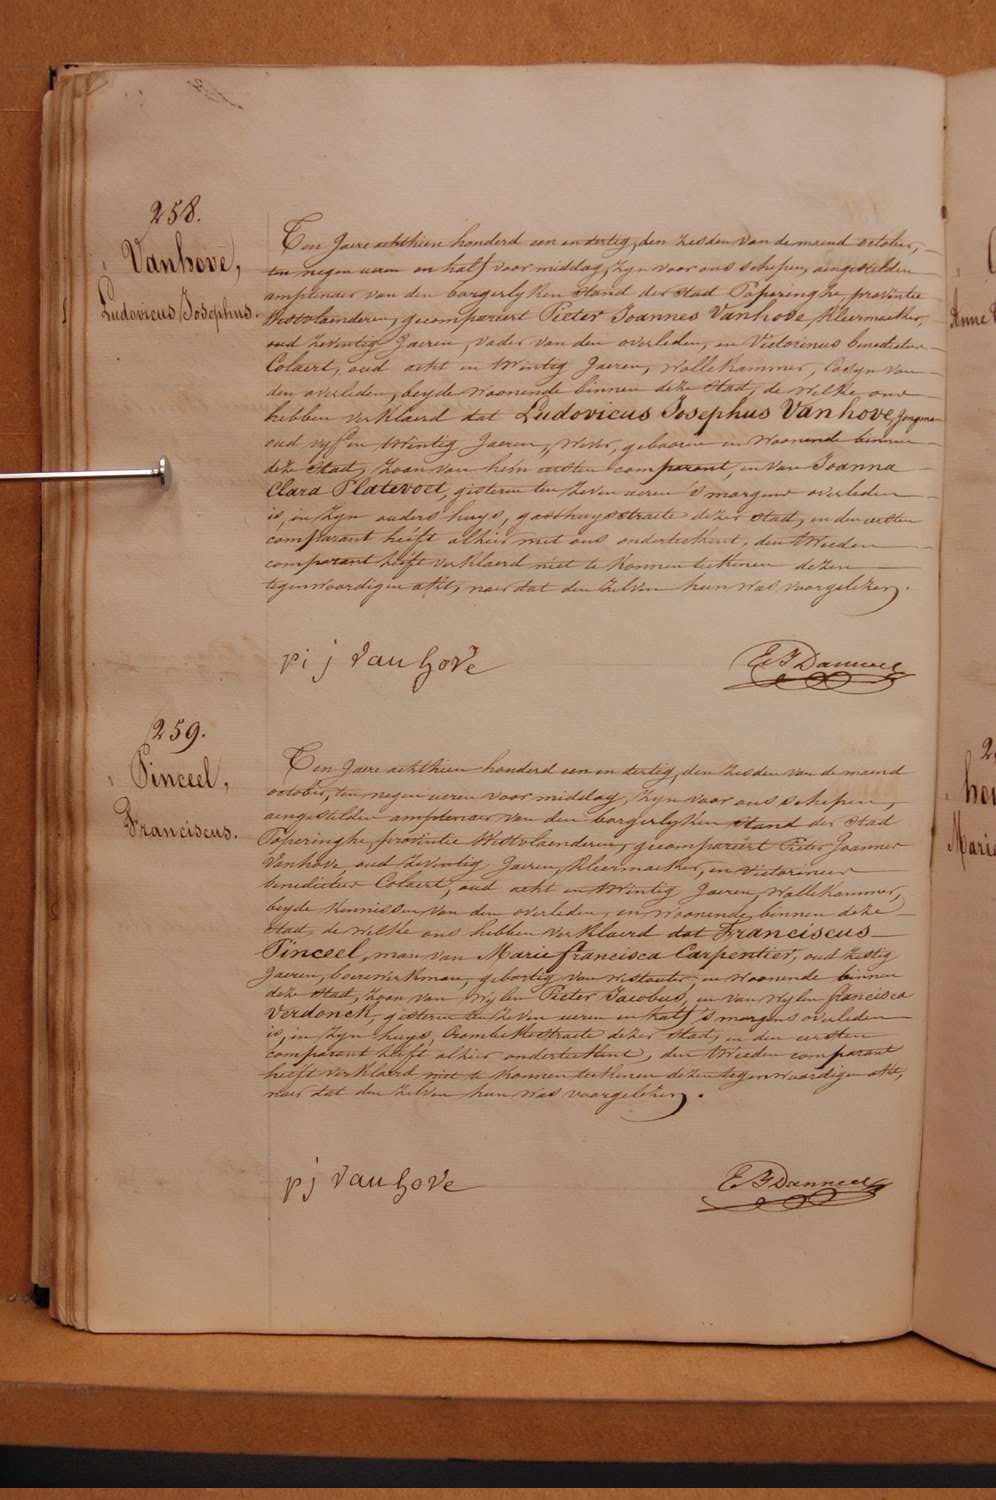 258.
Vanhove,
Ludovicus Josephus.
Ten Jaere achthien honderd een en dertig, den zesden van de maend october,
ten negen uren en half voor middag, zyn voor ons schepen, aengestelden
amptenaer van den borgerlyken stand der stad Poperinghe, provintie
Westvlaenderen, gecompareert Pieter Joannes Vanhove, kleermaeker,
oud zeventig Jaeren, vader van den overleden, en Victorinus benedictus
Colaert, oud acht en twintig Jaeren, wollekammer, Cosyn van
den overleden, beyde woonende binnen deze stad, de welke ons
hebben verklaerd dat Ludovicus Josephus Vanhove, Jongman
oud vyf en twintig Jaeren, wever, gebooren en woonende binnen
deze stad, zoon van hem eersten comparant, en van Joanna
Clara Platevoet, gisteren ten zeven uren 's morgens overleden
is, in zyn ouders huys, gasthuysstraete dezer stad, en den eersten
comparant heeft alhier met ons onderteekent, den tweeden
comparant heeft verklaerd niet te konnen teekenen dezen
tegenwoordigen akt, naer dat den zelven hun was voorgelezen.
pi j van hove
E J Danneel
259.
Pinceel,
Franciscus.
Ten Jaere achthien honderd een en dertig, den zesden van de maend
october, ten negen uren voor middag, zyn voor ons schepen,
aengestelden amptenaer van den borgerlyken stand der stad
Poperinghe, provintie Westvlaenderen, gecompareert Pieter Joannes
Vanhove, oud zeventig Jaeren, kleermaeker, en Victorinus
benedictus Colaert, oud acht en twintig Jaeren, wollekammer,
beyde kennissen van den overleden, en woonende binnen deze
stad, de welke ons hebben verklaerd dat Franciscus
Pinceel, man van Marie francisca Carpentier, oud zestig
Jaeren, boerwerkman, geboortig van westouter, en woonende binnen
deze stad, zoon van wylen Pieter Jacobus, en van wylen francisca
Verdonck, gisteren ten zeven uren en half 's morgens overleden
is, in zyn huys, Crombekestraete dezer stad, en den eersten
comparant heeft alhier onderteekent, den tweeden comparant
heeft verklaerd niet te konnen teekenen dezen tegenwoordigen akt,
naer dat den zelven hun was voorgelezen.
pj van hove
E J Danneel